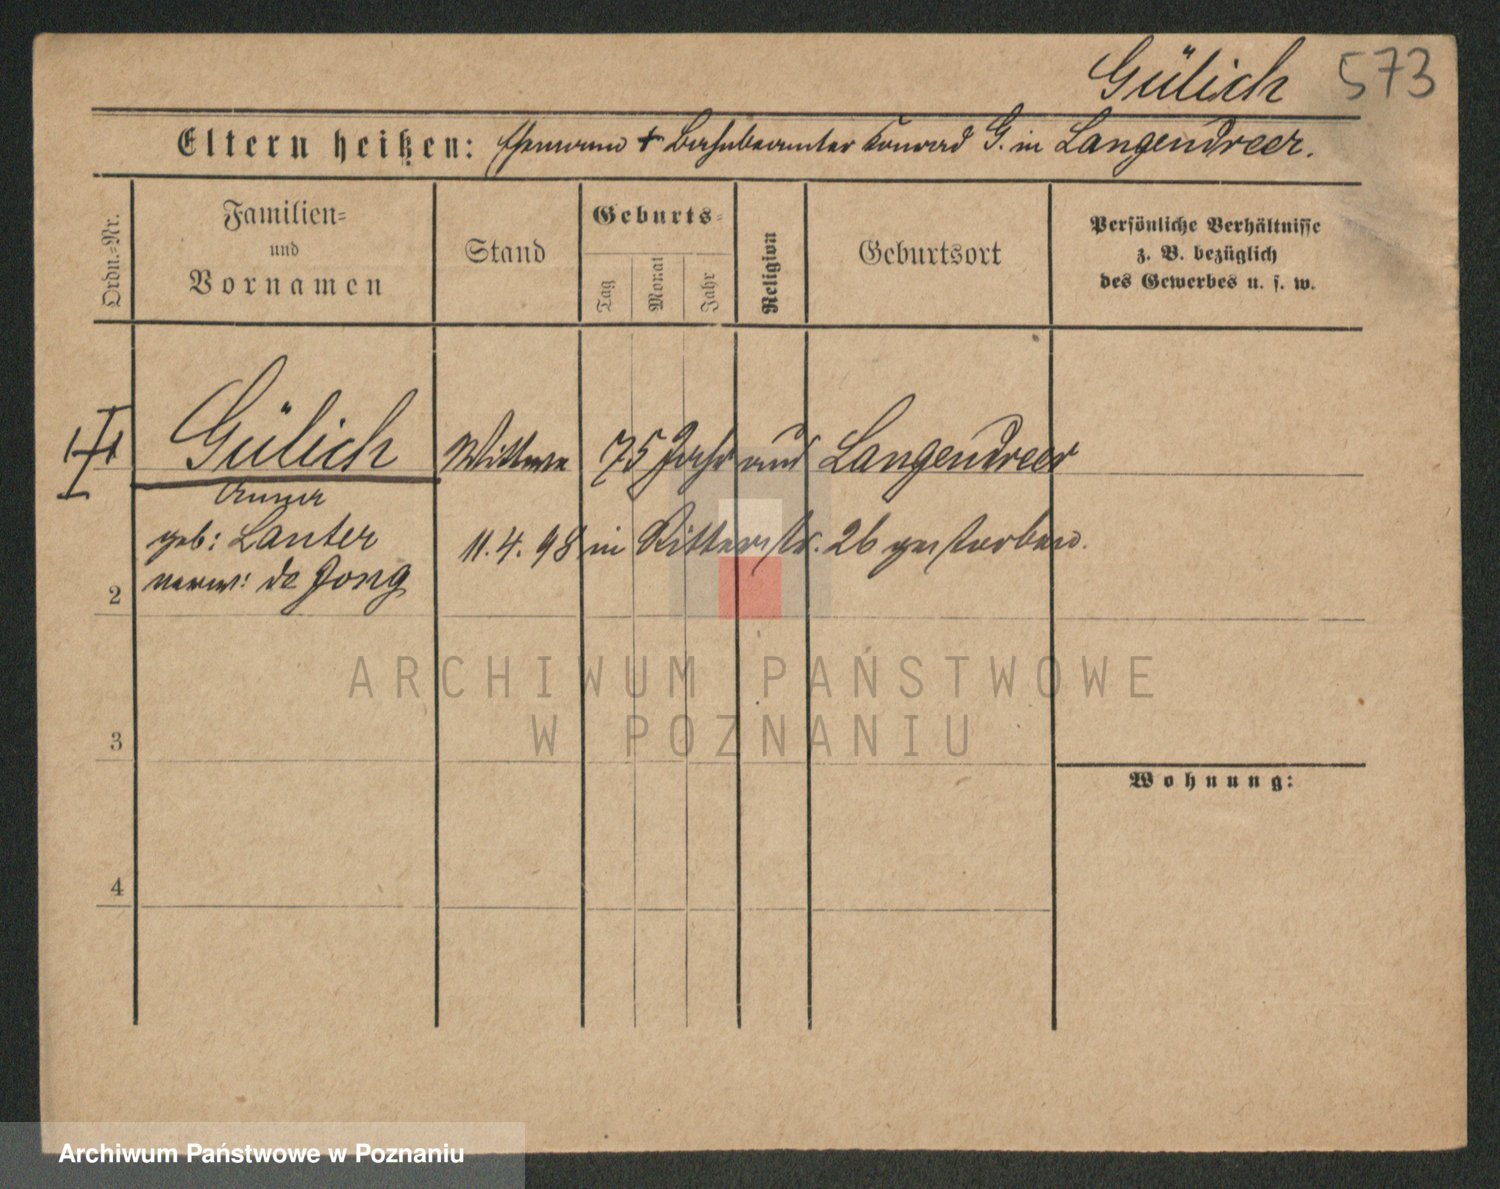 Gülich 573
Eltern heißen: Ehemann + Bahnbeamter Konrad G. in Langendreer.
Ordn.=Nr.
Familien=
und
Vornamen
Stand
Geburts=
Tag
Monat
Jahr
Religion
Geburtsort
Persönliche Verhältnisse
z. B. bezüglich
des Gewerbes u. s. w.
Gülich Wittwe 75 Jahr Langendreer
geb: Lanter 11.4.98 in Ritterstr. 26 gestorben.
2 verw: de Jong
3
4
Wohnung:
ARCHIWUM PAŃSTWOWE
W POZNANIU
Archiwum Państwowe w Poznaniu